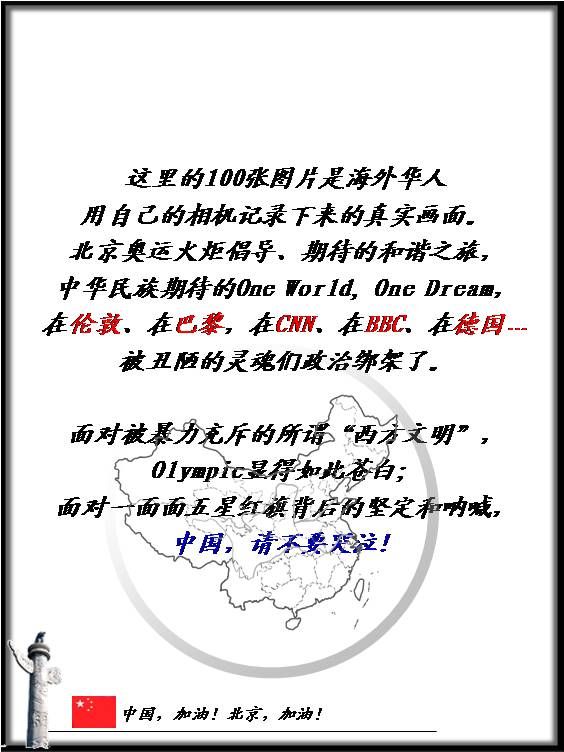 这里的100张图片是海外华人
用自己的相机记录下来的真实画面。
北京奥运火炬倡导、期待的和谐之旅，
中华民族期待的One World, One Dream，
在伦敦、在巴黎，在CNN、在BBC、在德国---
被丑陋的灵魂们政治绑架了。
面对被暴力充斥的所谓“西方文明”，
Olympic显得如此苍白；
面对一面面五星红旗背后的坚定和呐喊，
中国，请不要哭泣！
中国，加油！北京，加油！